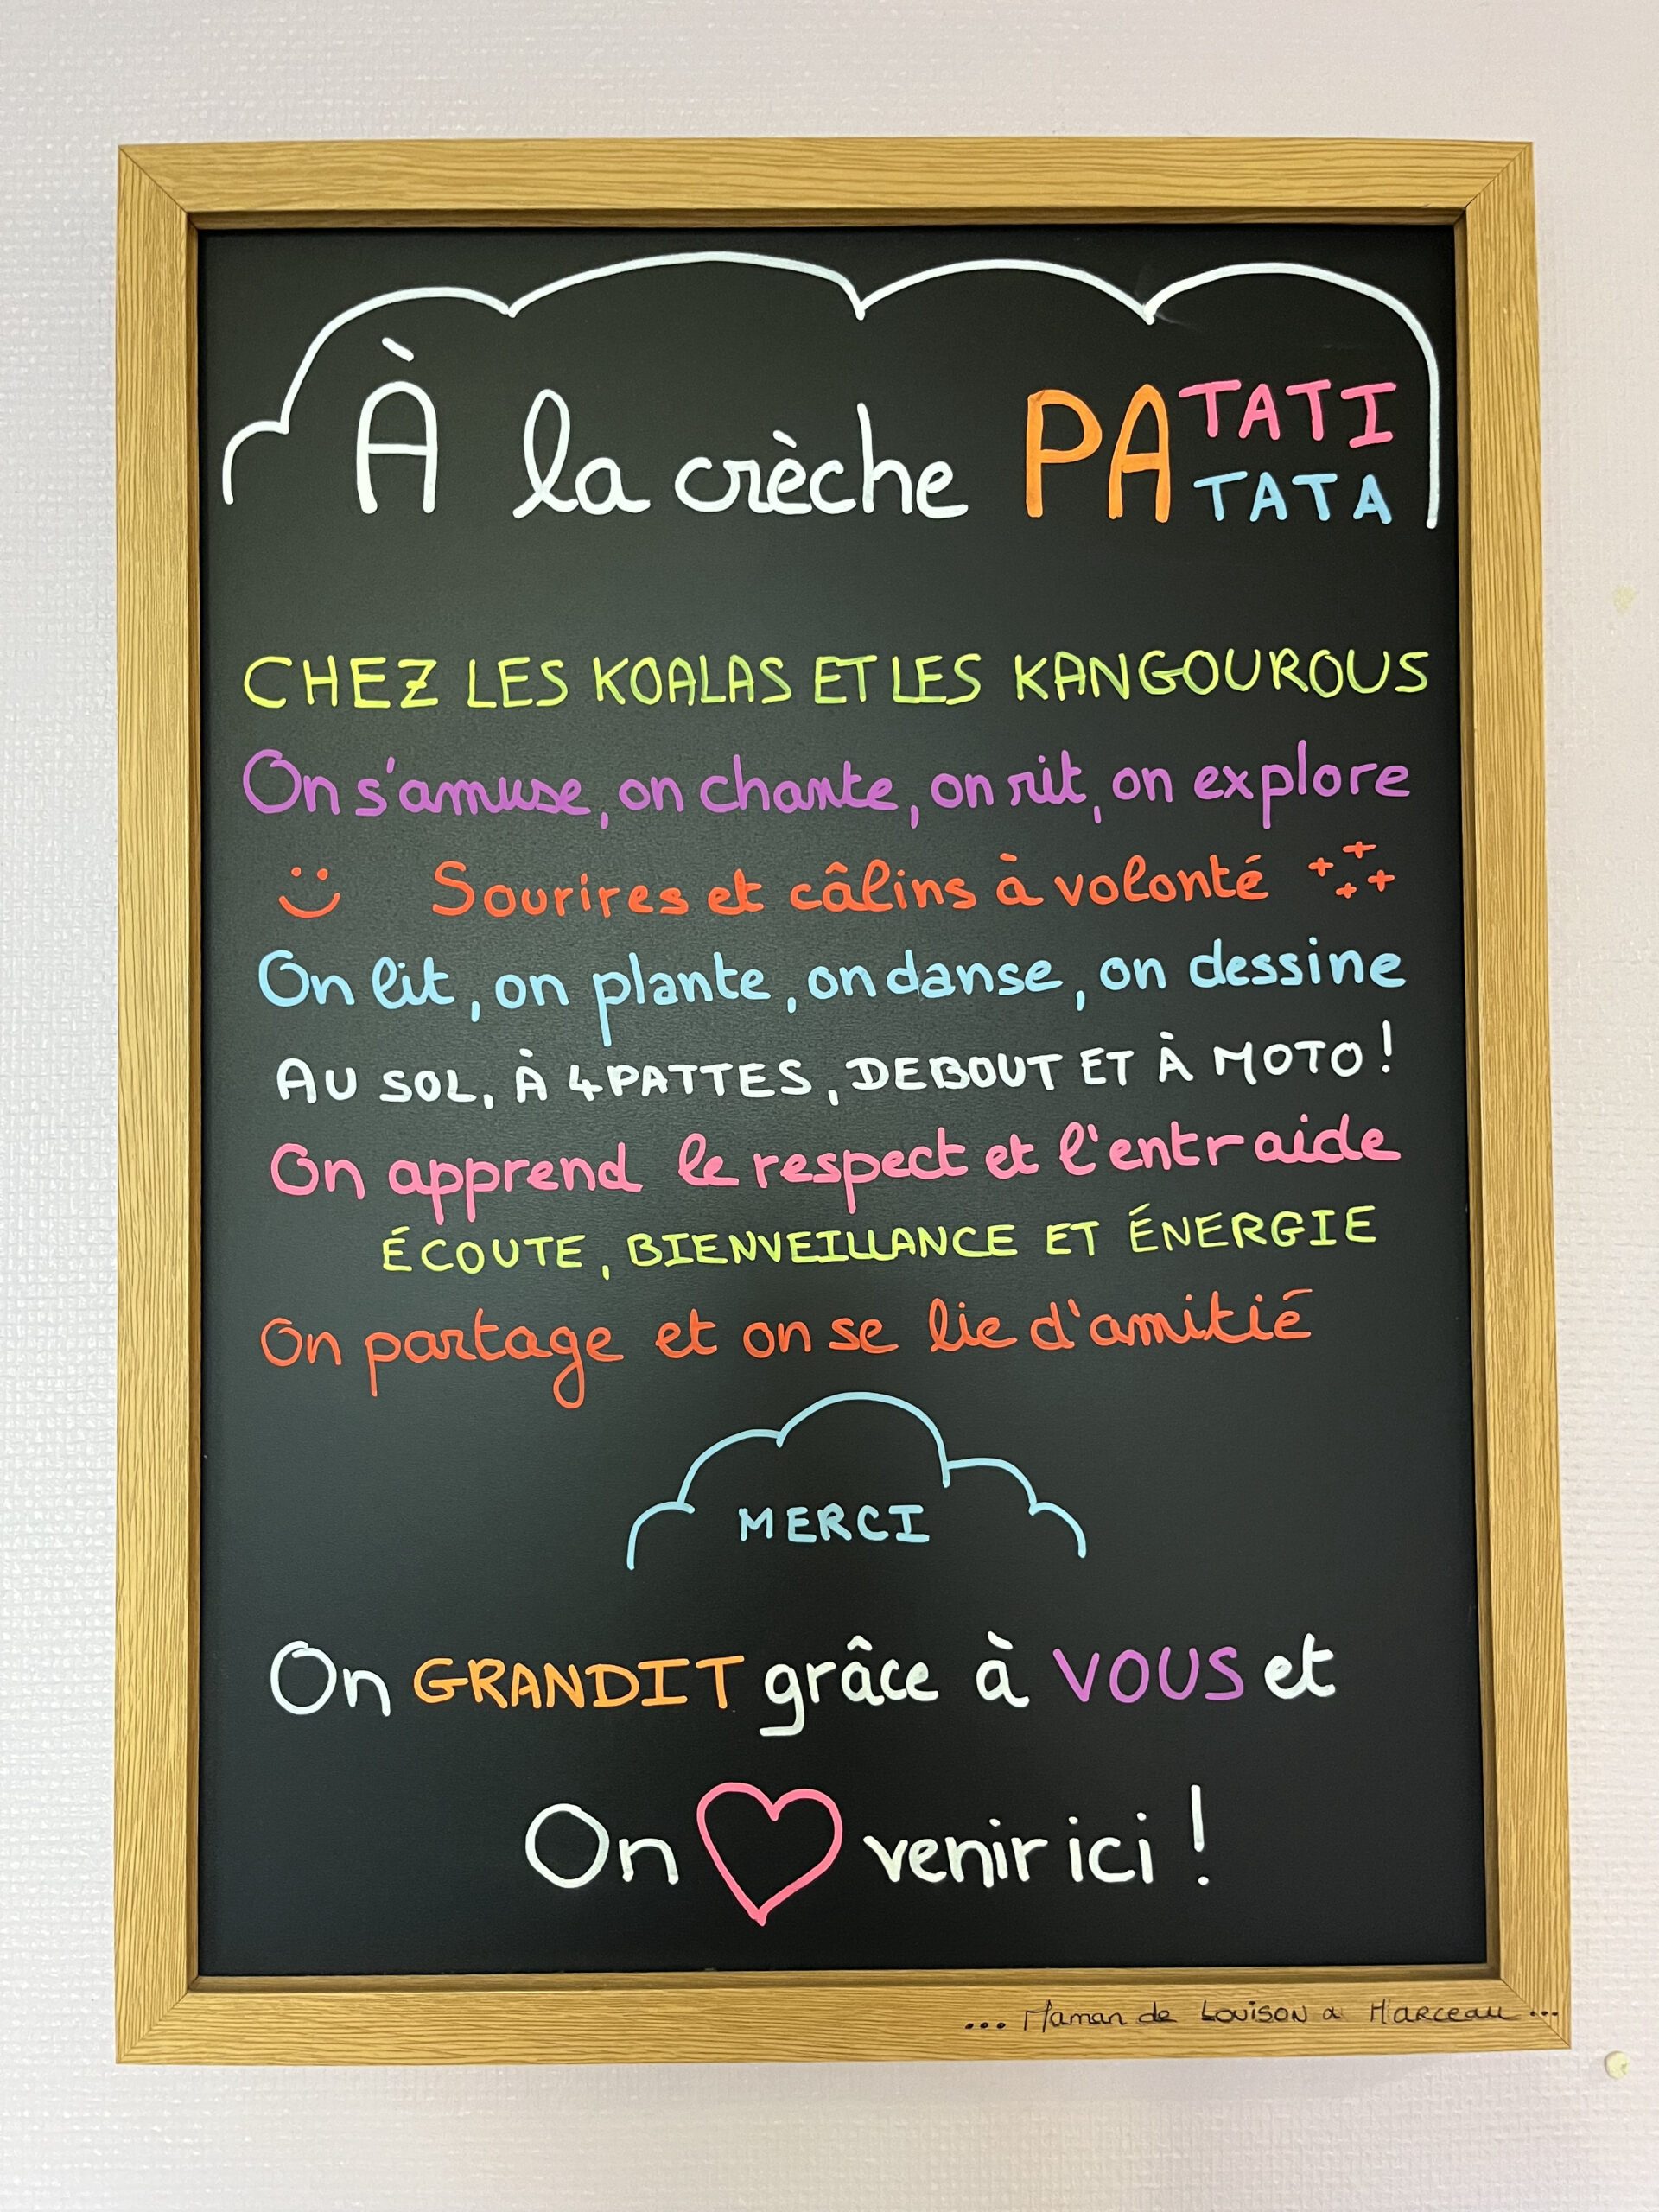 À la crèche PATATI
PATATA
CHEZ LES KOALAS ET LES KANGOUROUS
On s'amuse, on chante, on rit, on explore
Sourires et câlins à volonté
On lit, on plante, on danse, on dessine
AU SOL, À 4 PATTES, DEBOUT ET À MOTO !
On apprend le respect et l'entraide
ÉCOUTE, BIENVEILLANCE ET ÉNERGIE
On partage et on se lie d'amitié
MERCI
On GRANDIT grâce à VOUS et
On ♡ venir ici !
... Maman de Louison & Marceau ...